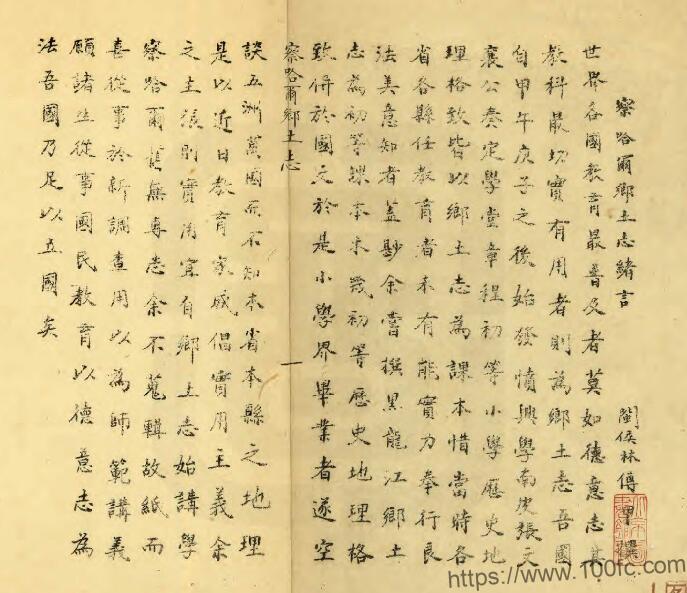 察哈爾鄉土志緒言
閩侯林傳甲撰
世界各國教育最普及者莫如德意志其
教科最切實有用者則為鄉土志吾國
自甲午庚子之後始發憤興學南皮張文
襄公奏定學堂章程初等小學歷史地
理格致皆以鄉土志為課本惜當時各
省各縣任教育者未有能實力奉行良
法美意知者蓋尠余嘗撰黑龍江鄉土
志為初等課本未幾初等歷史地理格
致併於國文於是小學界畢業者遂空
察哈爾鄉土志
一
談五洲萬國而不知本省本縣之地理
是以近日教育家咸倡實用主義余
之主張則實用宜自鄉土志始講學
察哈爾舊無專志余不蒐輯故紙而
喜從事於新調查用以為師範講義
願諸生從事國民教育以德意志為
法吾國乃足以立國矣
https://www.100fc.com